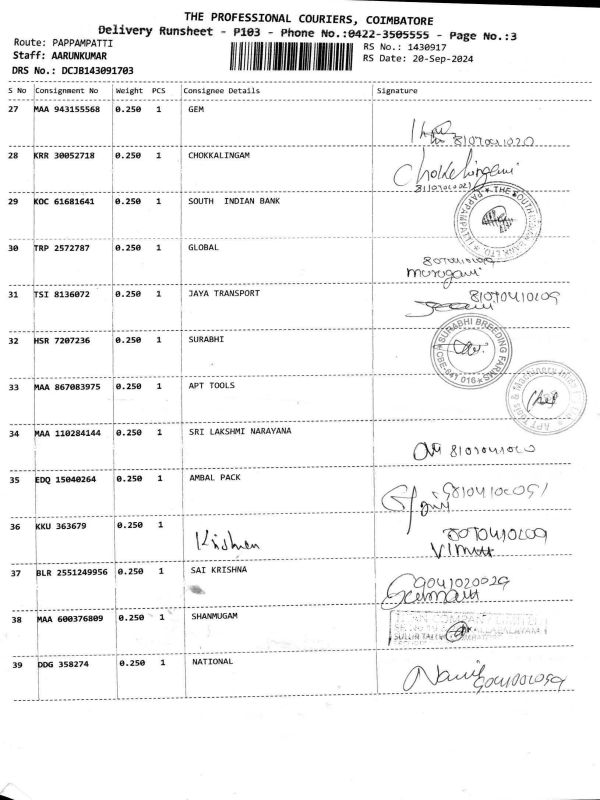 THE PROFESSIONAL COURIERS, COIMBATORE
Delivery Runsheet - P103 - Phone No.:0422-3505555 - Page No.:3
Route: PAPPAMPATTI
RS No.: 1430917
Staff: AARUNKUMAR
RS Date: 20-Sep-2024
DRS No.: DCJB143091703
S No Consignment No Weight PCS Consignee Details Signature
27 MAA 943155568 0.250 1 GEM
28 KRR 30052718 0.250 1 CHOKKALINGAM
Chokkalingam
29 KOC 61681641 0.250 1 SOUTH INDIAN BANK
30 TRP 2572787 0.250 1 GLOBAL
murugan
31 TSI 8136072 0.250 1 JAYA TRANSPORT
32 HSR 7207236 0.250 1 SURABHI
SURABHI BREEDING FARMS
CBE-641 016
33 MAA 867083975 0.250 1 APT TOOLS
34 MAA 110284144 0.250 1 SRI LAKSHMI NARAYANA
35 EDQ 15040264 0.250 1 AMBAL PACK
36 KKU 363679 0.250 1
Krishnan
37 BLR 2551249956 0.250 1 SAI KRISHNA
38 MAA 600376809 0.250 1 SHANMUGAM
39 DDG 358274 0.250 1 NATIONAL